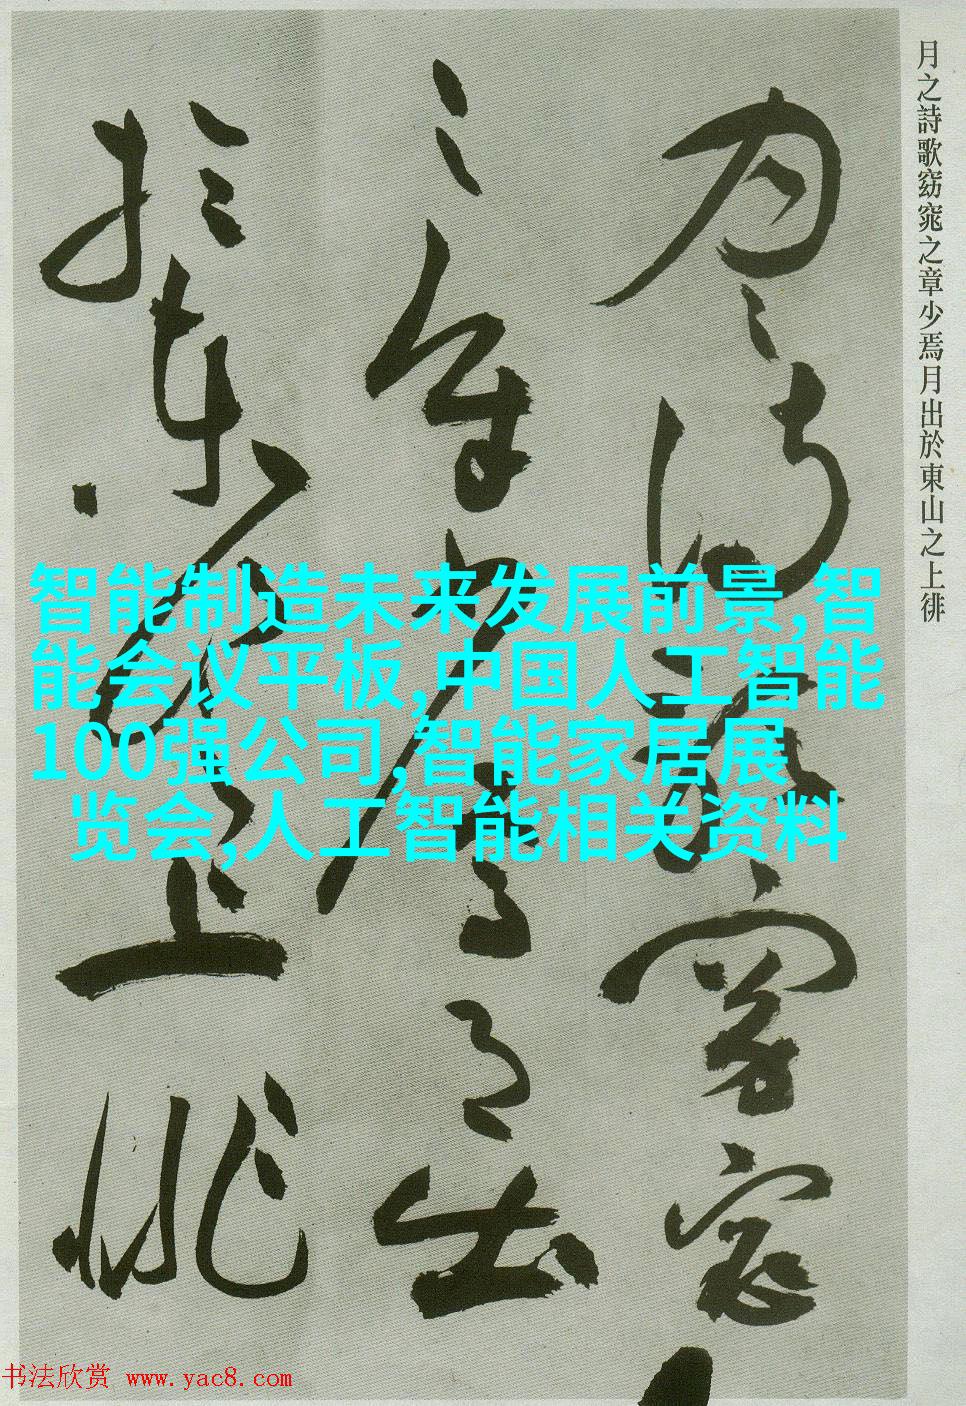 月之詩歌窈窕之章少焉月出於東山之上徘
月之詩歌窈窕
之章少焉月出
於東山之上徘
智能制造未来发展前景,智
能会议平板,中国人工智能
100强公司,智能家居展
览会,人工智能相关资料
书法欣赏 www.yac8.com